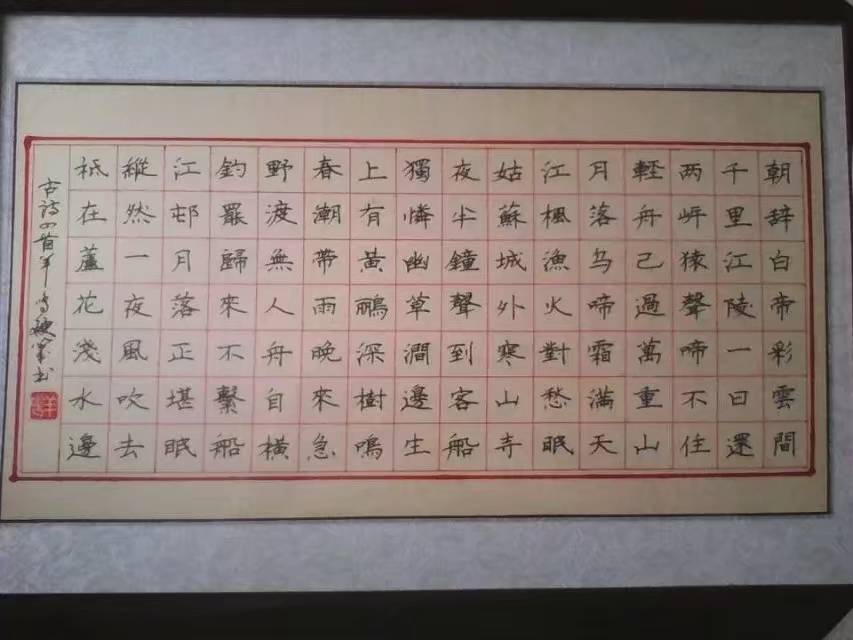 朝辞白帝彩雲間
千里江陵一日還
两岍猿聲啼不住
軽舟已過萬重山
月落乌啼霜满天
江楓漁火對愁眠
姑蘇城外寒山寺
夜半鐘聲到客船
獨憐幽草澗邊生
上有黃鸝深樹鳴
春潮帶雨晚來急
野渡無人舟自橫
釣罷歸來不繫船
江邨月落正堪眠
縱然一夜風吹去
衹在蘆花淺水邊
古詩四首